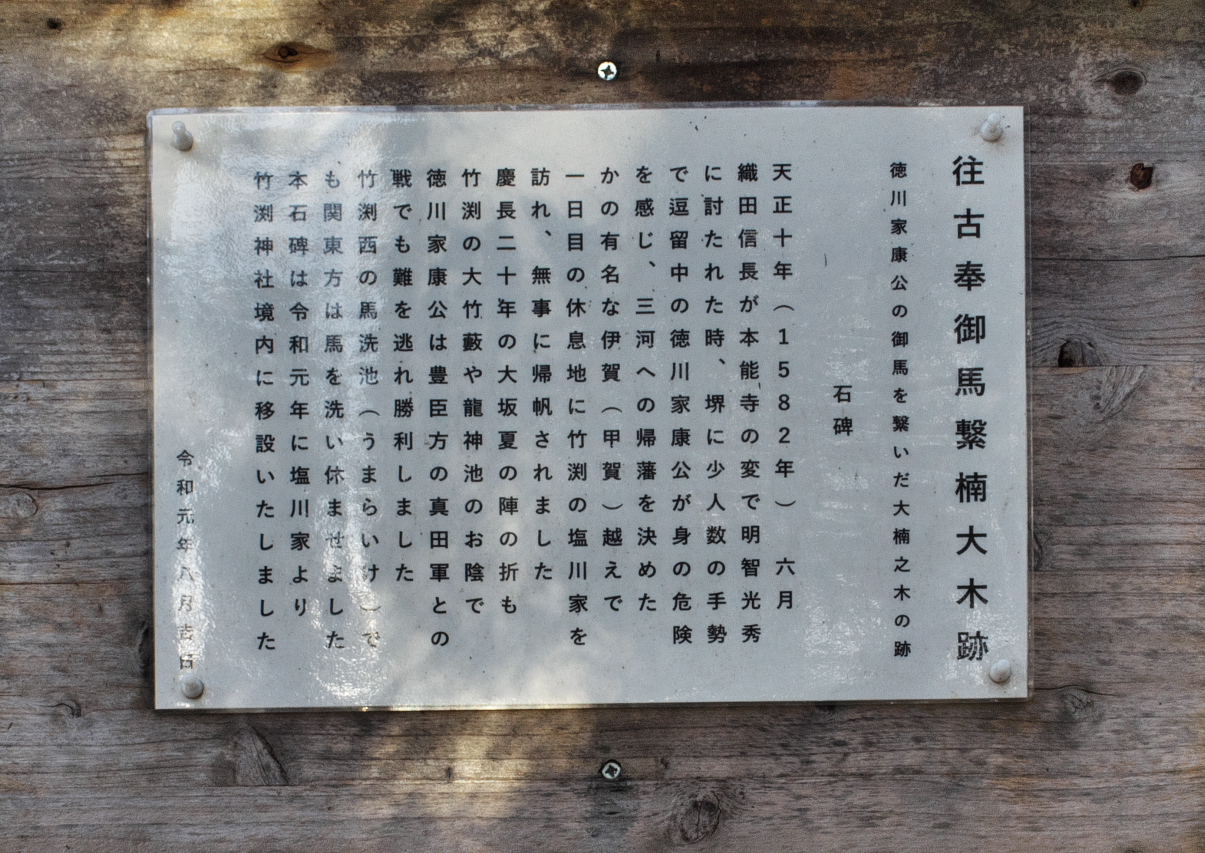 往古奉御馬繋楠大木跡
徳川家康公の御馬を繋いだ大楠之木の跡
石碑
天正十年（1582年）　六月
織田信長が本能寺の変で明智光秀
に討たれた時、堺に少人数の手勢
で逗留中の徳川家康公が身の危険
を感じ、三河への帰藩を決めた
かの有名な伊賀（甲賀）越えで
一日目の休息地に竹渕の塩川家を
訪れ、無事に帰帆されました
慶長二十年の大坂夏の陣の折も
竹渕の大竹藪や龍神池のお陰で
徳川家康公は豊臣方の真田軍との
戦でも難を逃れ勝利しました
竹渕西の馬洗池（うまらいけ）で
も関東方は馬を洗い休ませました
本石碑は令和元年に塩川家より
竹渕神社境内に移設いたしました
令和元年八月吉日